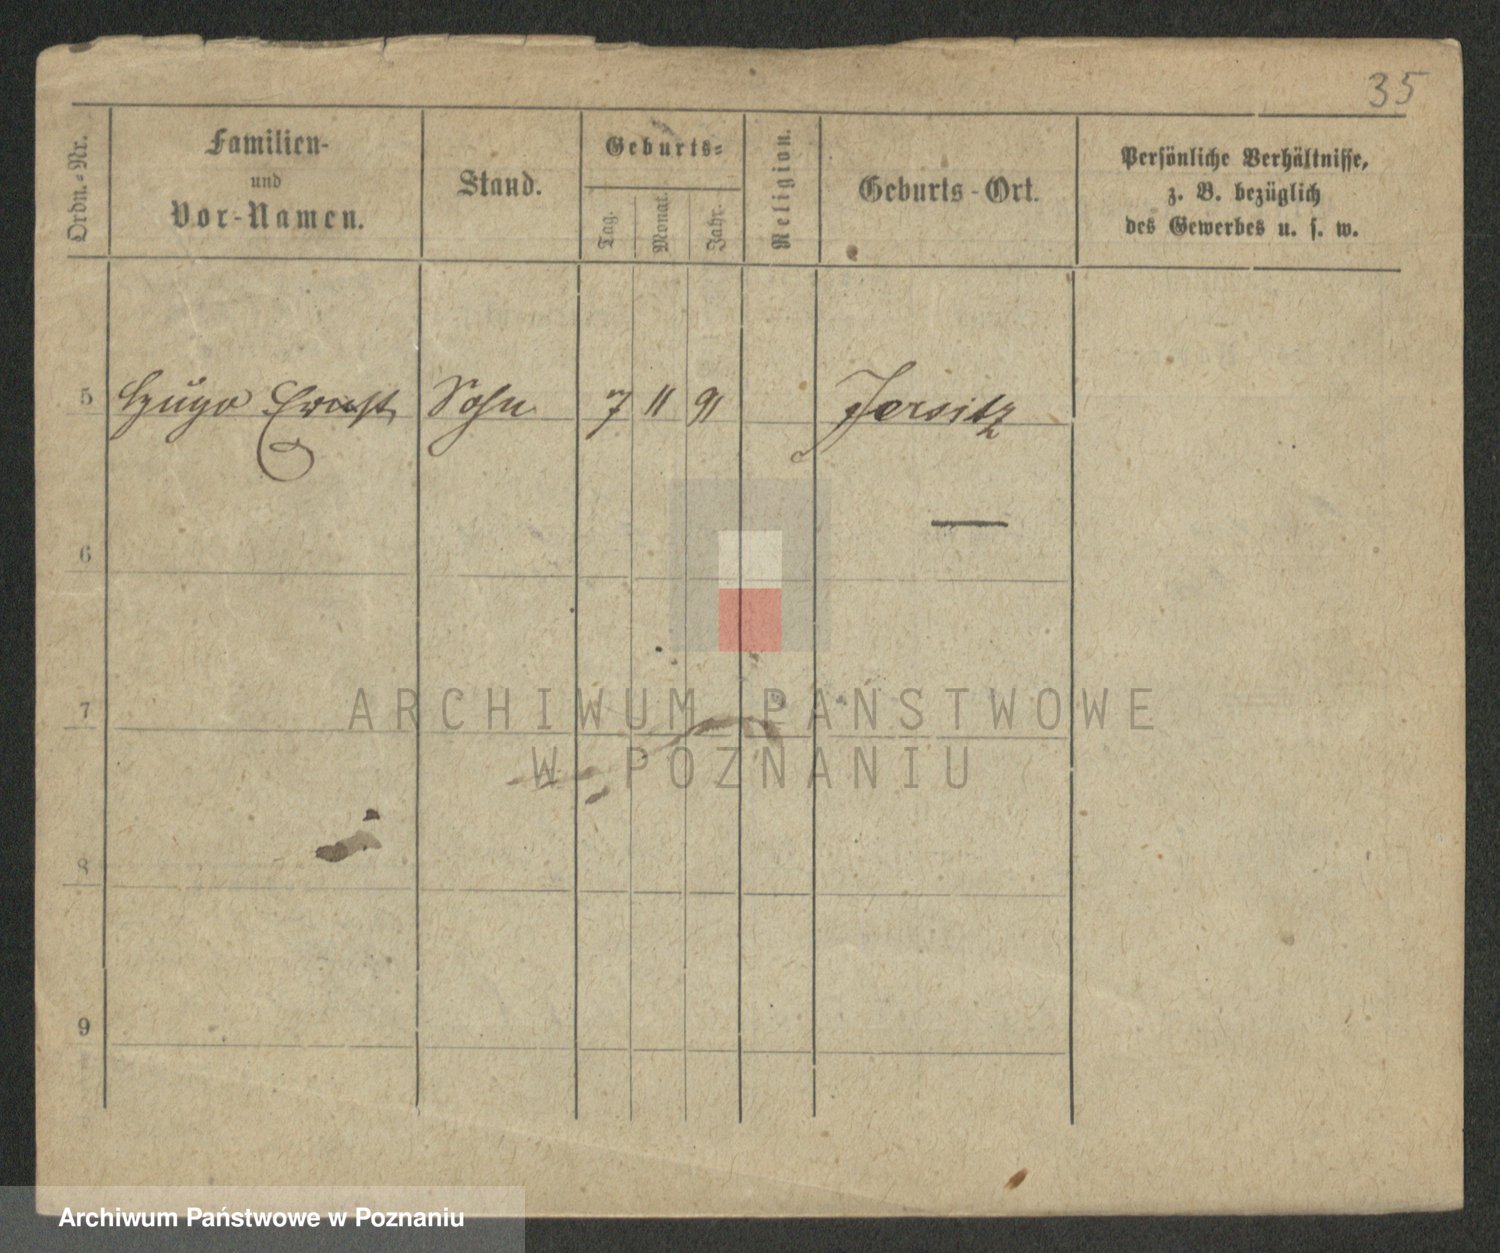 35
Ordn.-Nr.
Familien-
und
Vor-Namen.
Stand.
Geburts-
Tag.
Monat.
Jahr.
Religion.
Geburts-Ort.
Persönliche Verhältnisse,
z. B. bezüglich
des Gewerbes u. s. w.
5 Hugo Ernst Sohn 7 11 91 Jersitz
6
7
8
9
ARCHIWUM PAŃSTWOWE
W POZNANIU
Archiwum Państwowe w Poznaniu